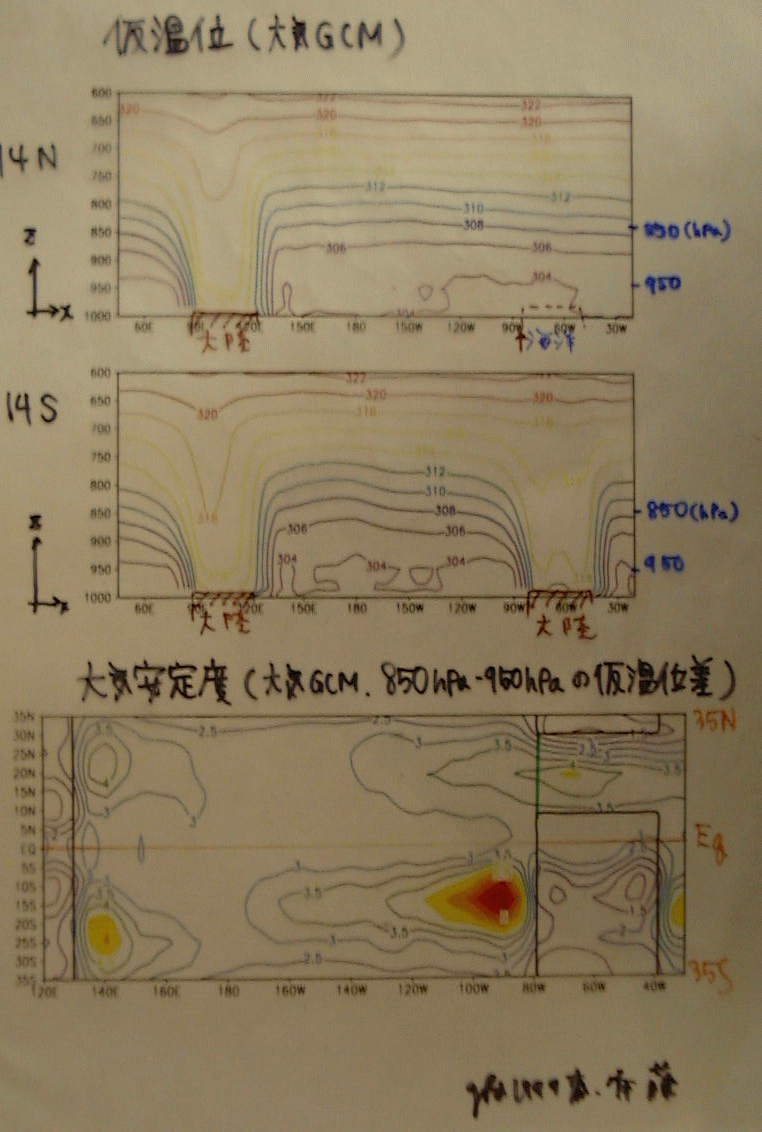 仮温位(大気GCM)
14N
600
650
700
750
800
850
900
950
1000
322
320
322
320
318
318
312
312
310
308
306
306
304
304
850(hPa)
950
z
x
60E
120E
150E
180
150W
120W
90W
60W
30W
大陸
14S
600
650
700
750
800
850
900
950
1000
322
320
320
318
318
318
312
310
308
306
306
304
304
304
850(hPa)
950
z
x
60E
120E
150E
180
150W
120W
90W
60W
30W
大陸
大陸
大気安定度(大気GCM、850hPa-950hPaの仮温位差)
35N
30N
25N
20N
15N
10N
5N
EQ
5S
10S
15S
20S
25S
30S
35S
3.5
2.5
2.5
3
3.5
2.5
3.5
4
3
3
3.5
3.5
3.5
1.5
3
2.5
3
35N
Eq
35S
120E
140E
160E
180
160W
140W
120W
100W
80W
60W
40W